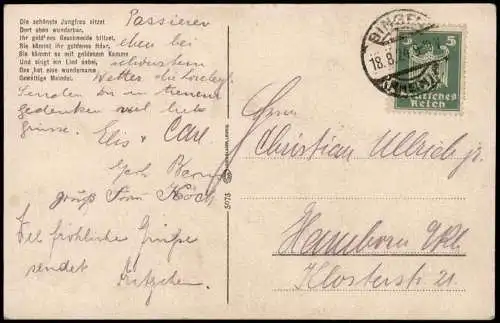 Die schönste Jungfrau sitzet
Dort oben wunderbar,
Ihr gold'nes Geschmeide blitzet,
Sie kämmt ihr goldenes Haar,
Sie kämmt es mit goldenem Kamme
Und singt ein Lied dabei,
Das hat eine wundersame
Gewaltige Melodei.
Passieren
eben bei
schönstem
Wetter die Loreley.
Senden in treuem
gedenken viel liebe
grüsse. Elis u Carl
gruß Frau Koch
Viel fröhliche Grüße
sendet Fritzchen.
5075
BINGEN
18.8.
5
Deutsches
Reich
Herrn
Christian Ullrich jr.
Hamborn a/Rh.
Klosterstr 21.